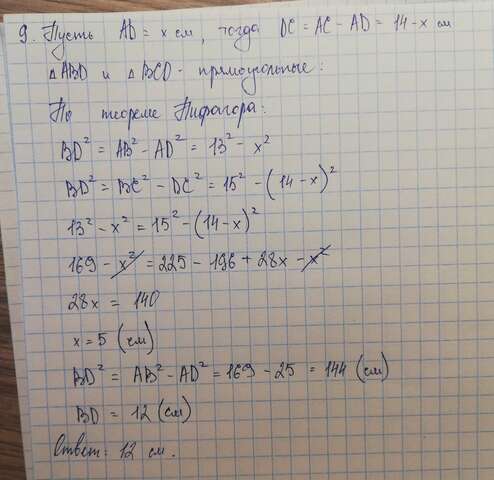 9. Пусть AD = x см, тогда DC = AC - AD = 14 - x см
△ABD и △BCD - прямоугольные:
По теореме Пифагора:
BD² = AB² - AD² = 13² - x²
BD² = BC² - DC² = 15² - (14 - x)²
13² - x² = 15² - (14 - x)²
169 - x² = 225 - 196 + 28x - x²
28x = 140
x = 5 (см)
BD² = AB² - AD² = 169 - 25 = 144 (см)
BD = 12 (см)
Ответ: 12 см.